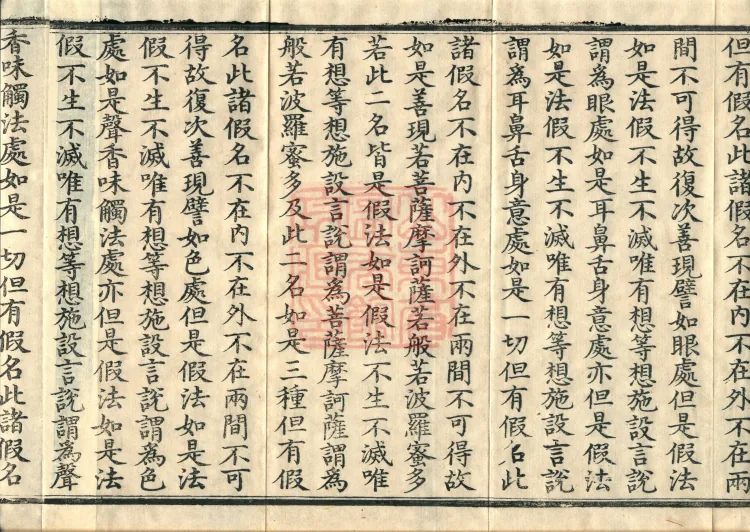 但有假名此諸假名不在內不在外不在兩
間不可得故復次善現譬如眼處但是假法
如是法假不生不滅唯有想等想施設言說
謂為眼處如是耳鼻舌身意處亦但是假法
如是法假不生不滅唯有想等想施設言說
謂為耳鼻舌身意處如是一切但有假名此
諸假名不在內不在外不在兩間不可得故
如是善現若菩薩摩訶薩若般若波羅蜜多
若此二名皆是假法如是假法不生不滅唯
有想等想施設言說謂為菩薩摩訶薩謂為
般若波羅蜜多及此二名如是三種但有假
名此諸假名不在內不在外不在兩間不可
得故復次善現譬如色處但是假法如是法
假不生不滅唯有想等想施設言說謂為色
處如是聲香味觸法處亦但是假法如是法
假不生不滅唯有想等想施設言說謂為聲
香味觸法處如是一切但有假名此諸假名